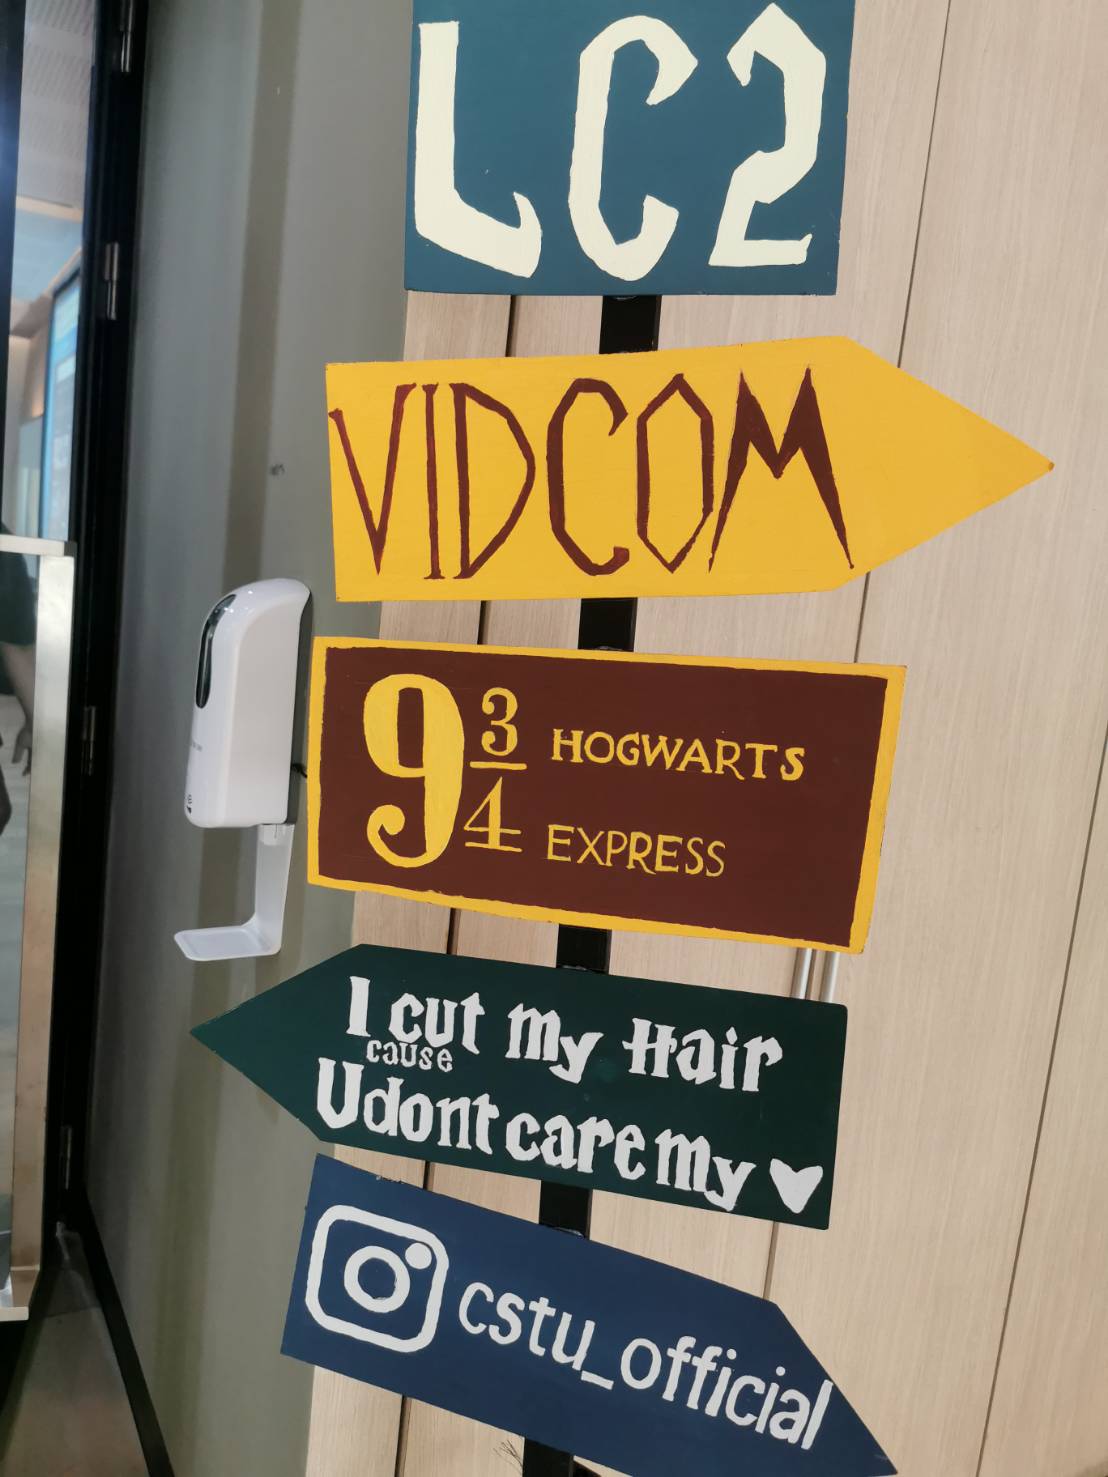 LC2
VIDCOM
9 3/4 HOGWARTS
EXPRESS
I cut my Hair
cause
U dont care my
cstu_official